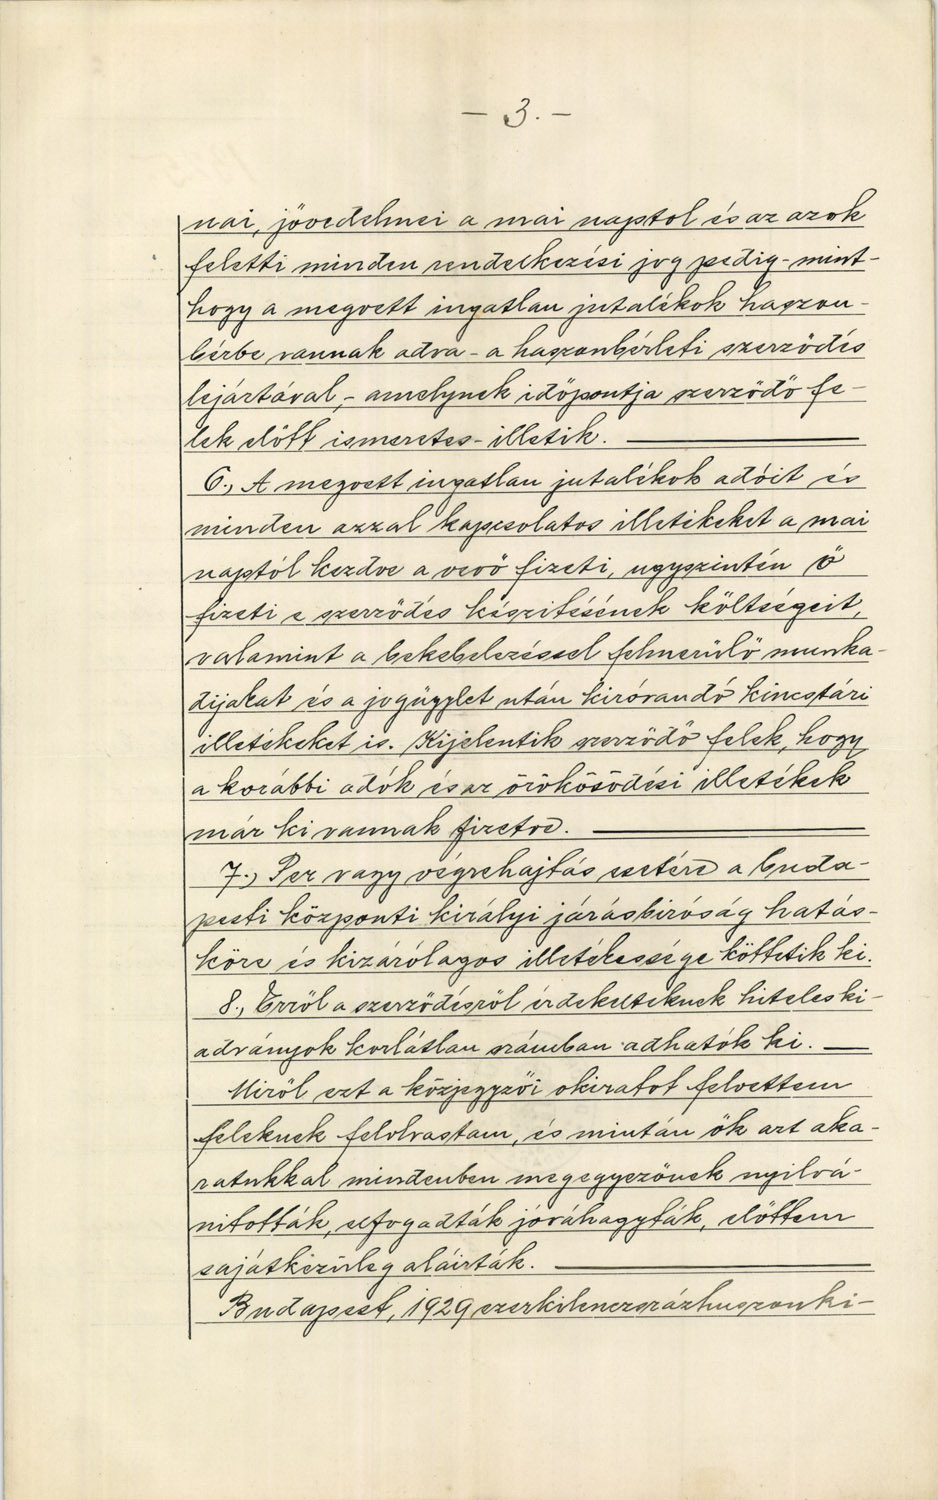 - 3. -
nai, jövedelmei a mai naptol és az azok
feletti minden rendelkezési jog pedig - mint-
hogy a megvett ingatlan jutalékok haszon-
bérbe vannak adva - a haszonbérleti szerződés
lejártával, - amelynek időpontja szerződő fe-
lek előtt ismeretes - illetik.
6., A megvett ingatlan jutalékok adóit és
minden azzal kapcsolatos illetékeket a mai
naptól kezdve a vevő fizeti, ugyszintén ő
fizeti e szerződés készitésének költségeit,
valamint a bekebelezéssel felmerülő munka-
dijakat és a jogügylet után kirovandó kincstári
illetékeket is. Kijelentik szerződő felek, hogy
a korábbi adók és az örökösödési illetékek
már ki vannak fizetve.
7., Per vagy végrehajtás esetére a buda-
pesti központi királyi járásbiróság hatás-
köre és kizárólagos illetékessége köttetik ki.
8., Erről a szerződésről érdekelteknek hiteles ki-
adványok korlátlan számban adhatók ki.
Miről ezt a közjegyzői okiratot felvettem
feleknek felolvastam, és miután ők azt aka-
ratukkal mindenben megegyezőnek nyilvá-
nitották, elfogadták jóváhagyták, előttem
sajátkezüleg aláirták.
Budapest, 1929 ezerkilencszázhuszonki-